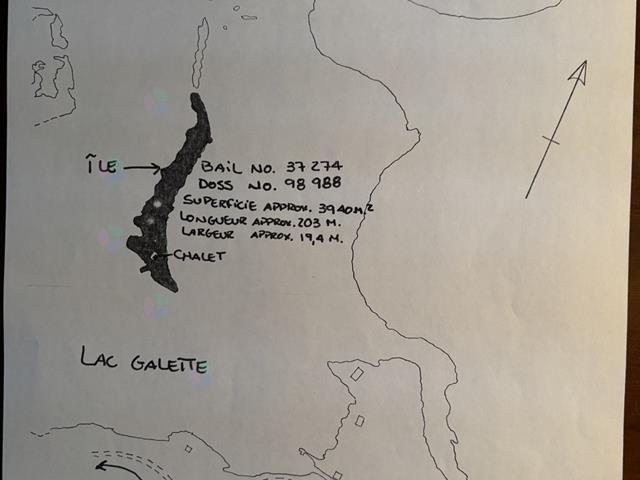 ÎLE
BAIL NO. 37 274
DOSS NO. 98 988
SUPERFICIE APPROX. 3940 M.²
LONGUEUR APPROX. 203 M.
LARGEUR APPROX. 19,4 M.
CHALET
LAC GALETTE